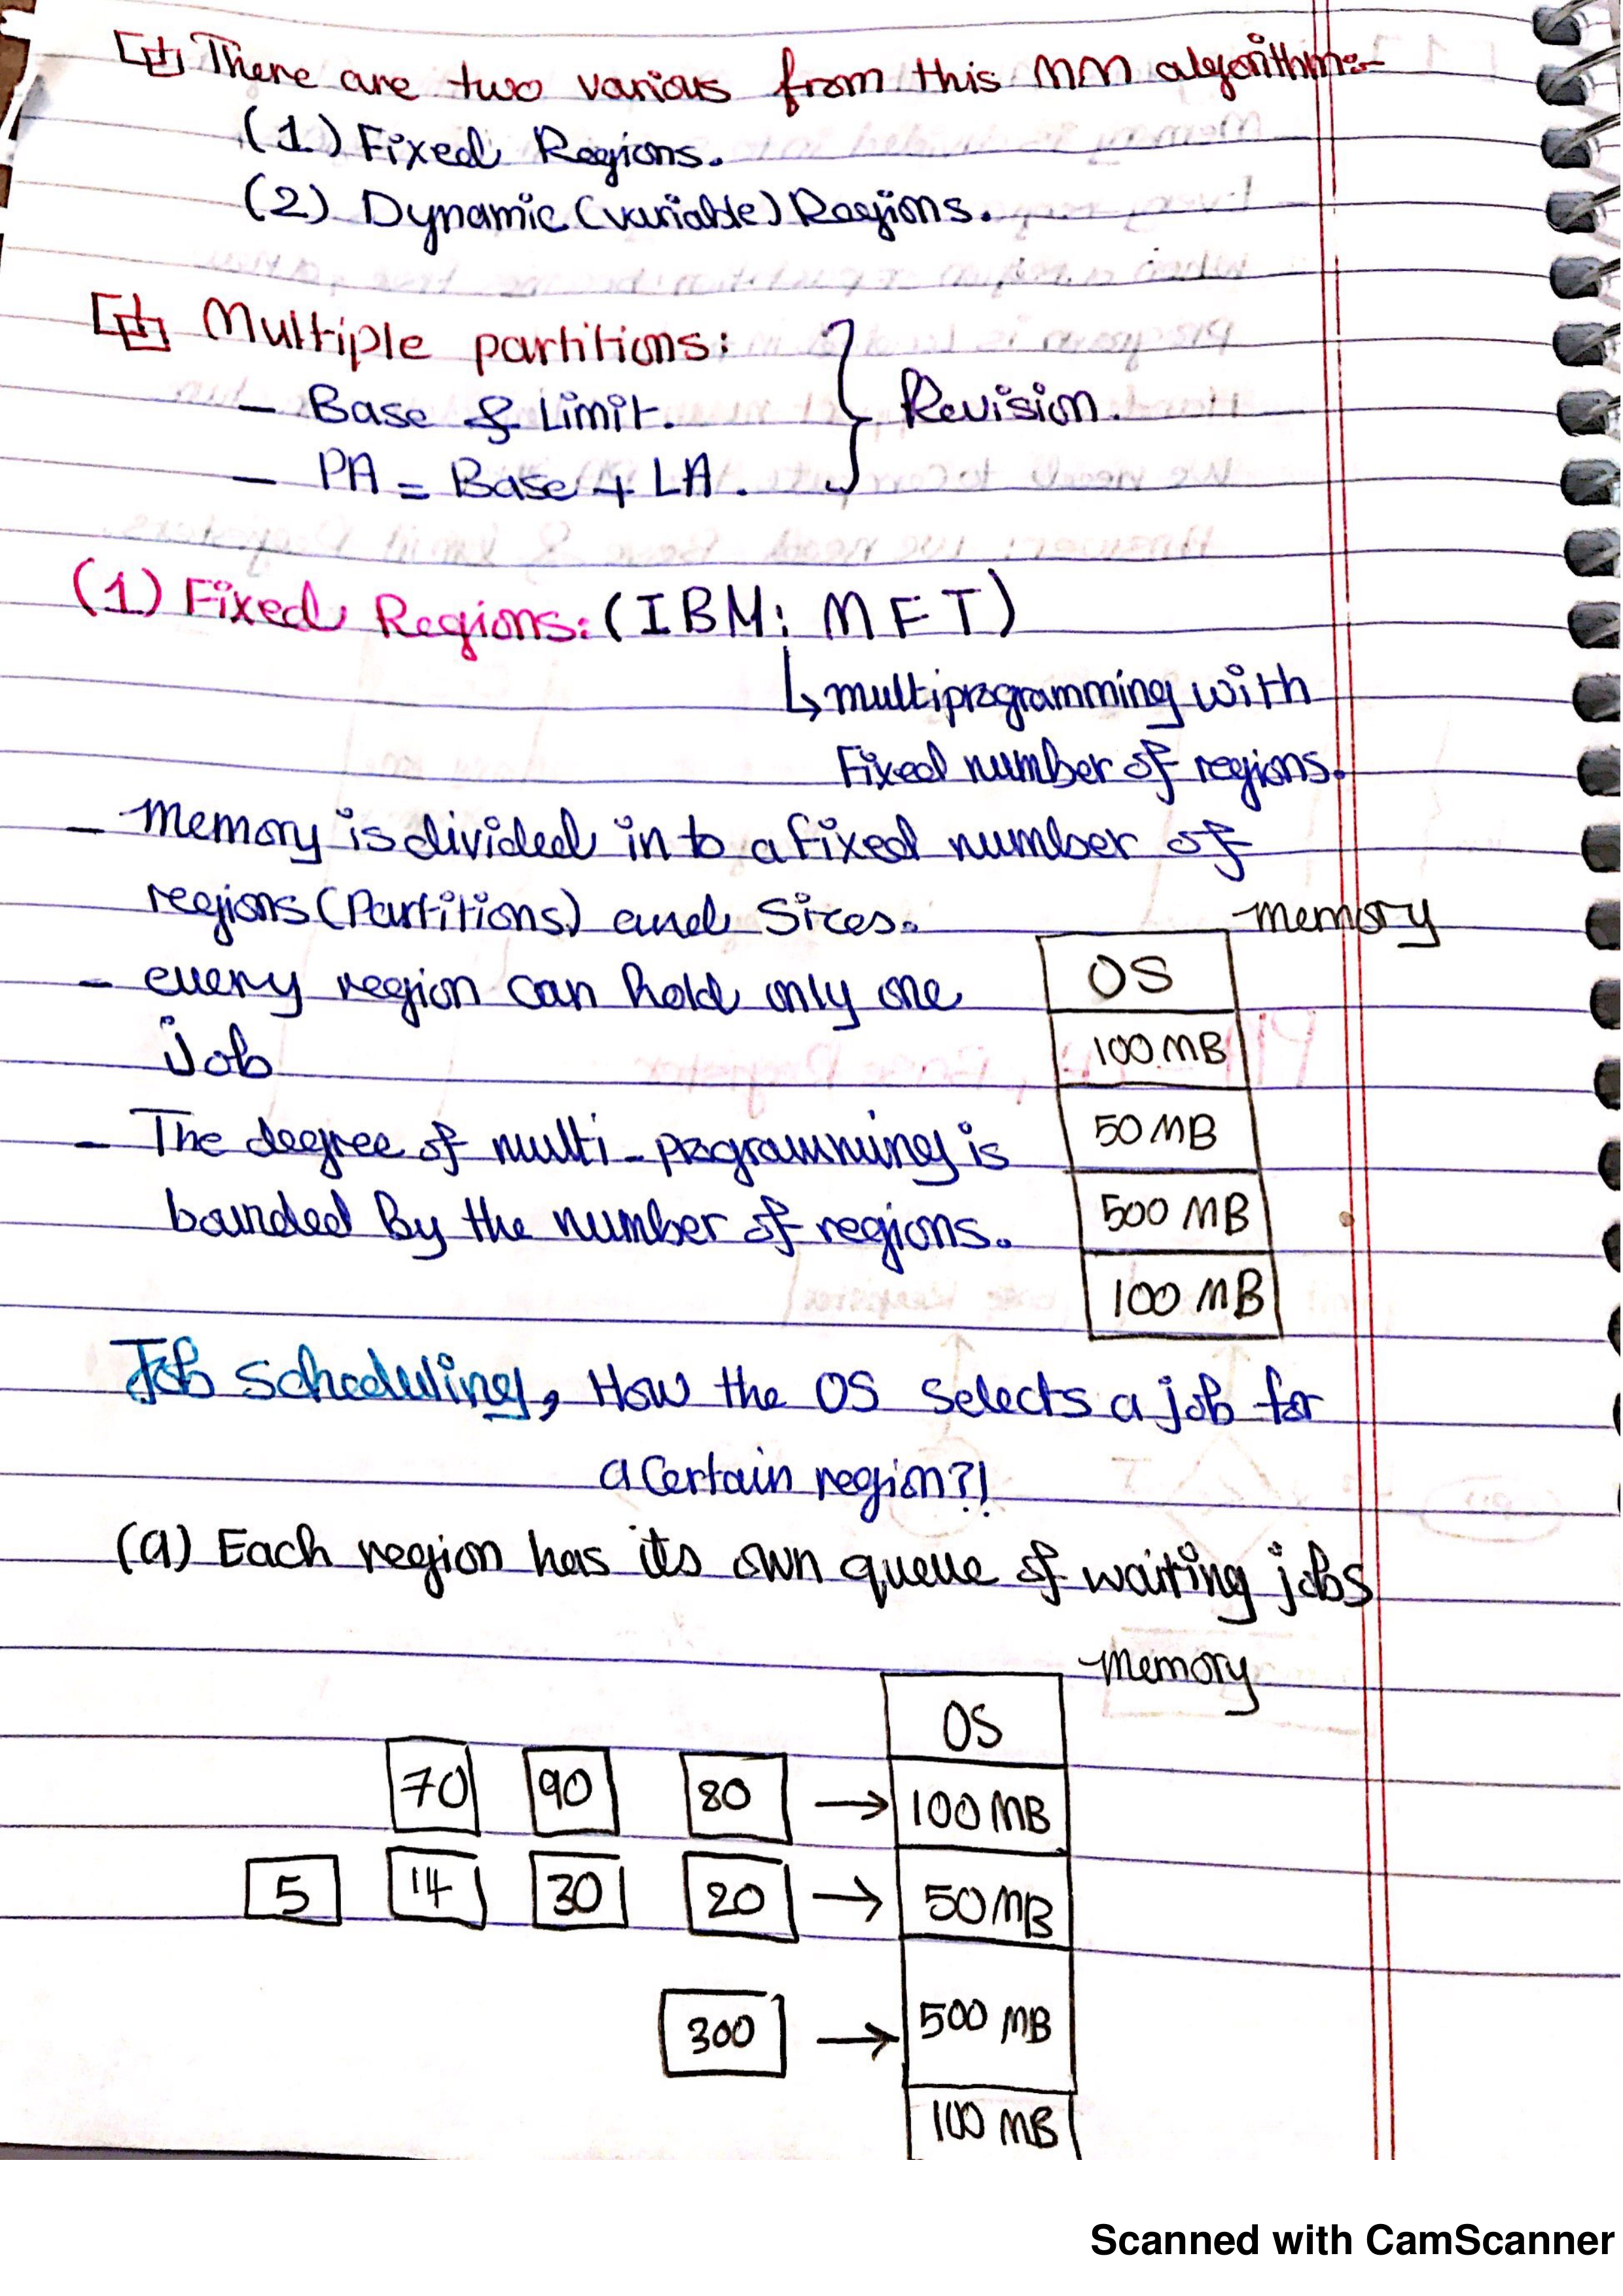 There are two various from this MM algorithm:-
(1) Fixed Regions.
(2) Dynamic (variable) Regions.
Multiple partitions:
- Base & Limit.
- PA = Base + LA.
Revision.
(1) Fixed Regions: (IBM: MFT)
↳ multiprogramming with
Fixed number of regions.
- Memory is divided in to a fixed number of
regions (Partitions) and Sizes.
- every region can hold only one
job
- The degree of multi-programming is
bounded By the number of regions.
memory
OS
100 MB
50 MB
500 MB
100 MB
Job scheduling, How the OS selects a job for
a certain region?!
(a) Each region has its own queue of waiting jobs
memory
OS
70 90 80 → 100 MB
5 14 30 20 → 50 MB
300 → 500 MB
100 MB
Scanned with CamScanner